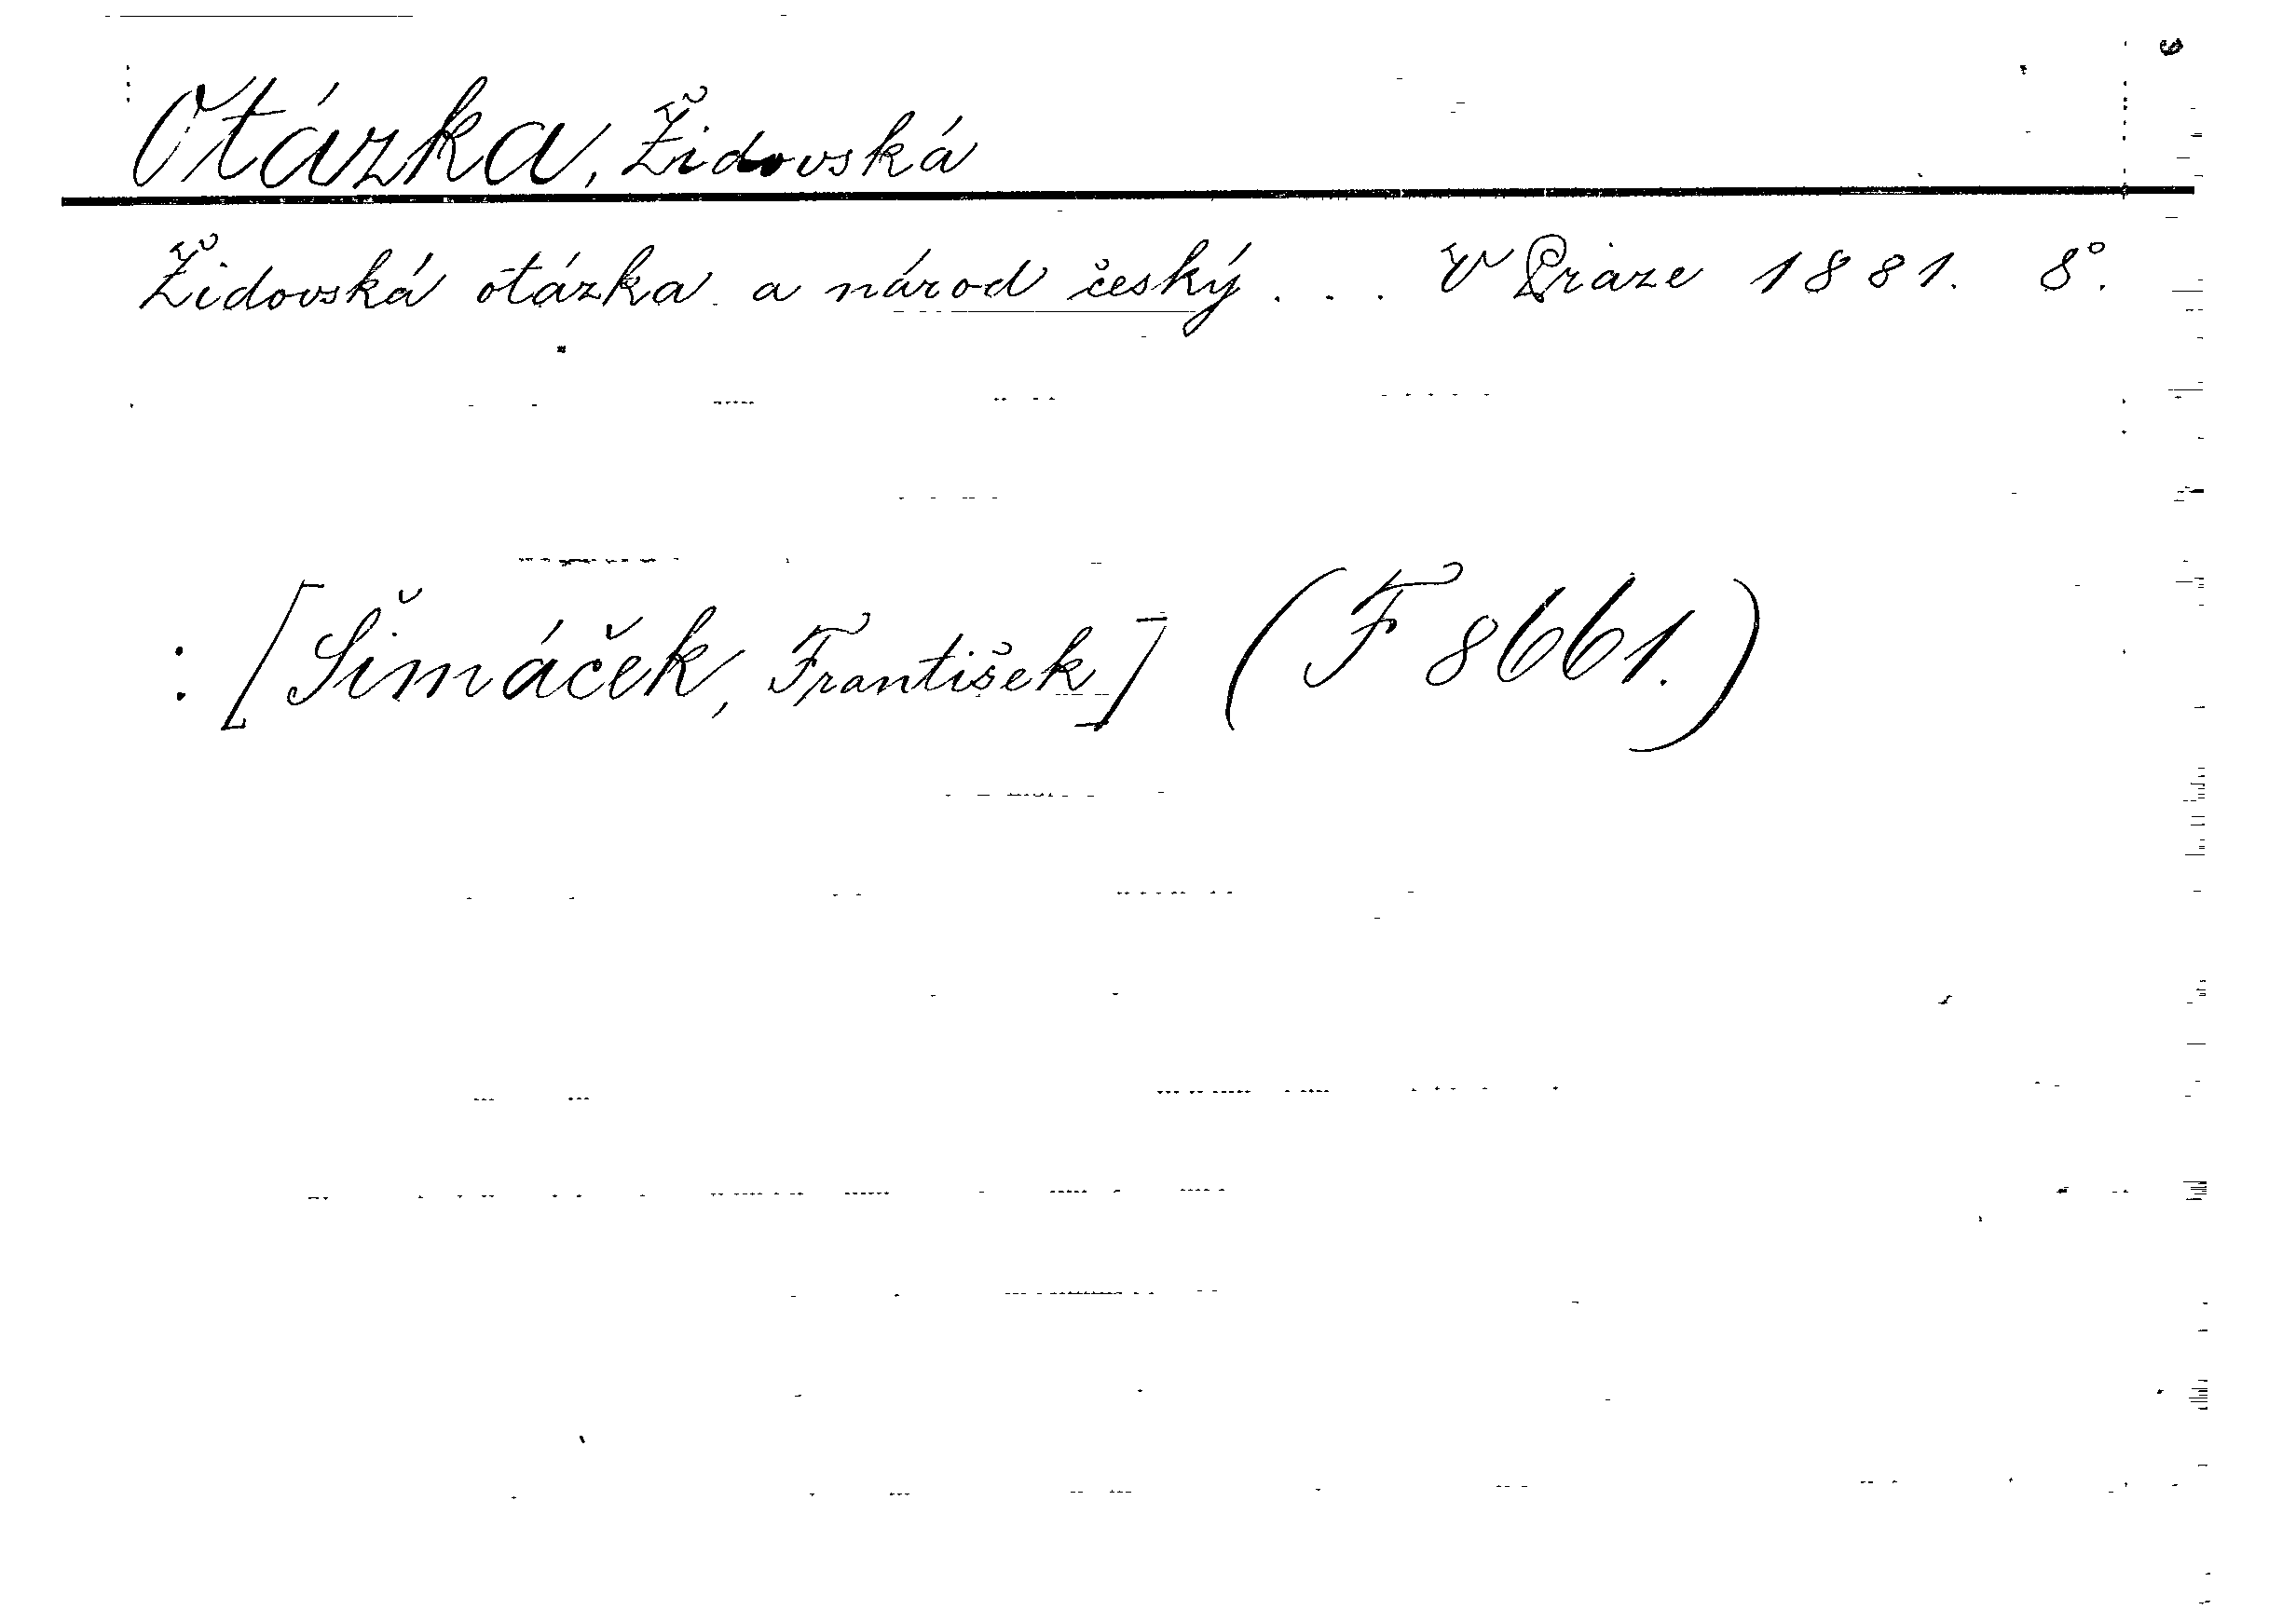 Otázka, Židovská
Židovská otázka a národ český . . . V Praze 1881. 8°.
: [Šimáček, František] (F 8661.)